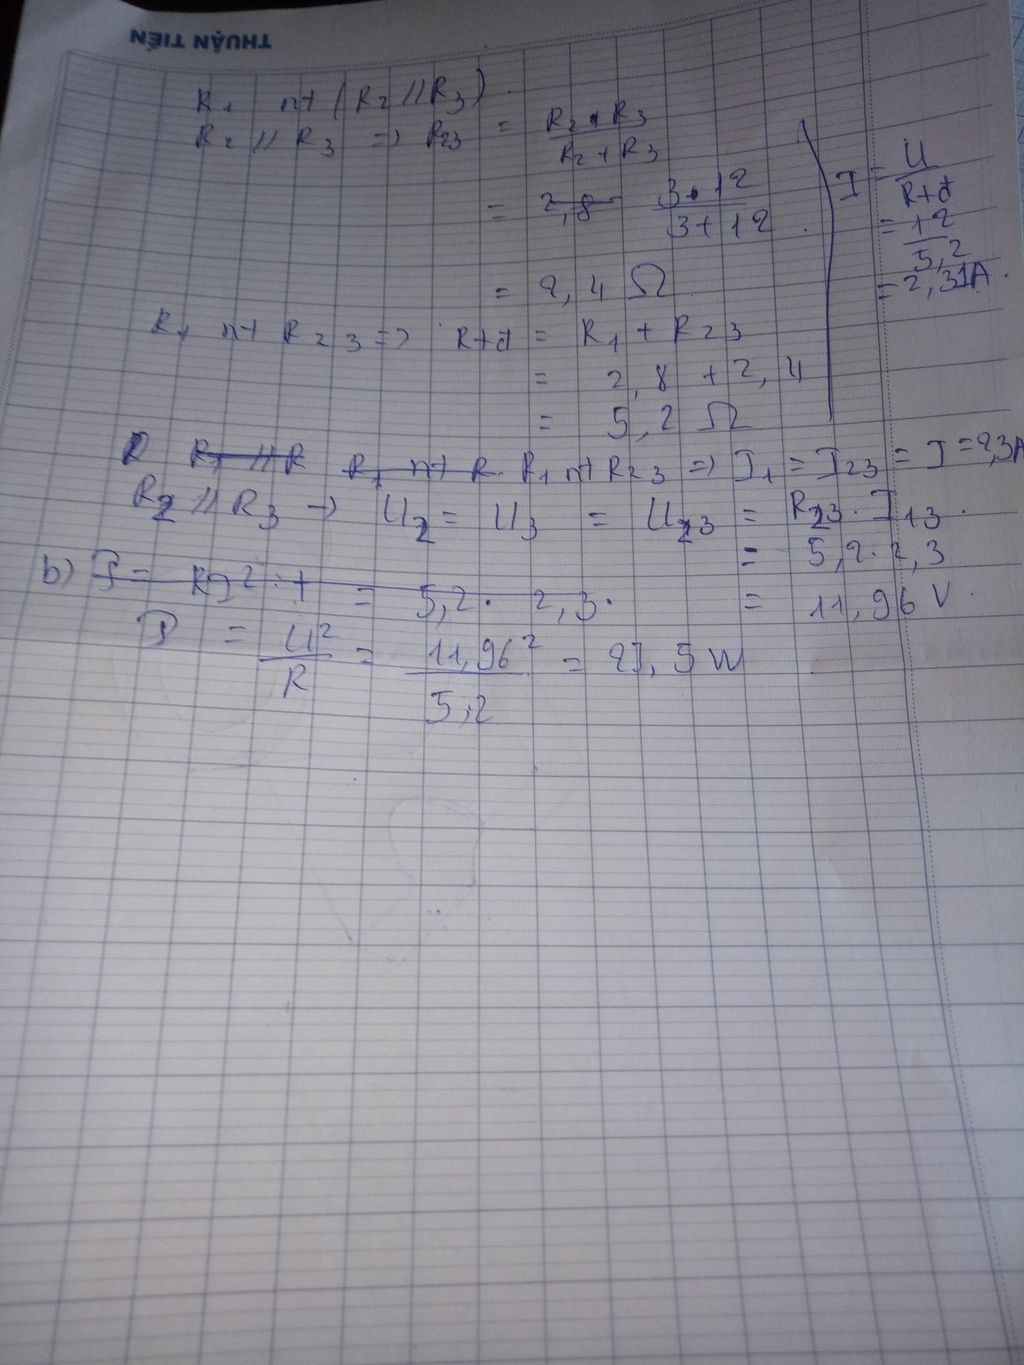 THUẬN TIẾN
R1 nt (R2 // R3).
R2 // R3 => R23 = R2 . R3 / R2 + R3
= 2,8 3.12 / 3+12
= 2,4 Ω
R1 nt R23 => Rtđ = R1 + R23
= 2,8 + 2,4
= 5,2 Ω
I = U / Rtđ
= 12 / 5,2
= 2,31A.
R R1 // R R1 nt R R1 nt R23 => I1 = I23 = I = 2,3A
R2 // R3 -> U2 = U3 = U23 = R23 . I13.
= 5,2 . 2,3
= 11,96 V
b) P = RI² . t = 5,2 . 2,3.
P = U² / R = 11,96² / 5,2 = 27,5 W